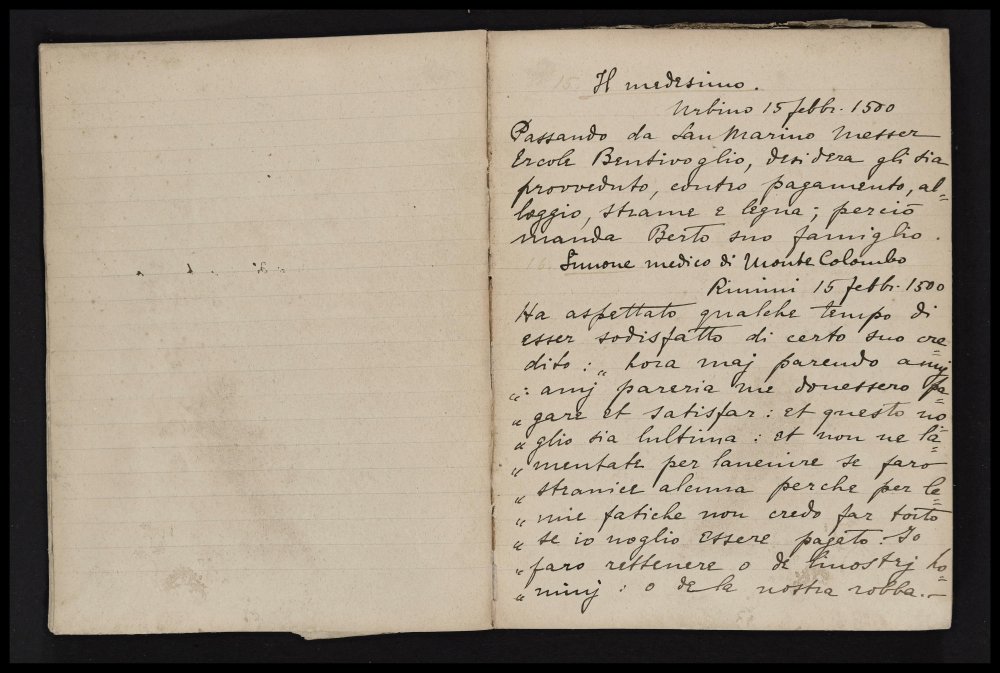 Il medesimo.
Urbino 15 febbr. 1500
Passando da San Marino Messer
Ercole Bentivoglio, desidera gli sia
provveduto, contro pagamento, al=
loggio, strame e legna; perciò
manda Berto suo famiglio.
Simone medico di Monte Colombo
Rimini 15 febbr. 1500
Ha aspettato qualche tempo di
esser sodisfatto di certo suo cre=
dito: „ hora maj parendo amj
„: amj pareria me douessero pa=
„ gare et satisfar: et questo uo=
„ glio sia lultima: et non ue la=
„ mentate per lauenire se faro
„ stranice alcuna perche per le=
„ mie fatiche non credo far torto
„ se io uoglio essere pagato. Io
„ faro rettenere o de liuostrj ho=
„ minj: o de la uostra robba.–